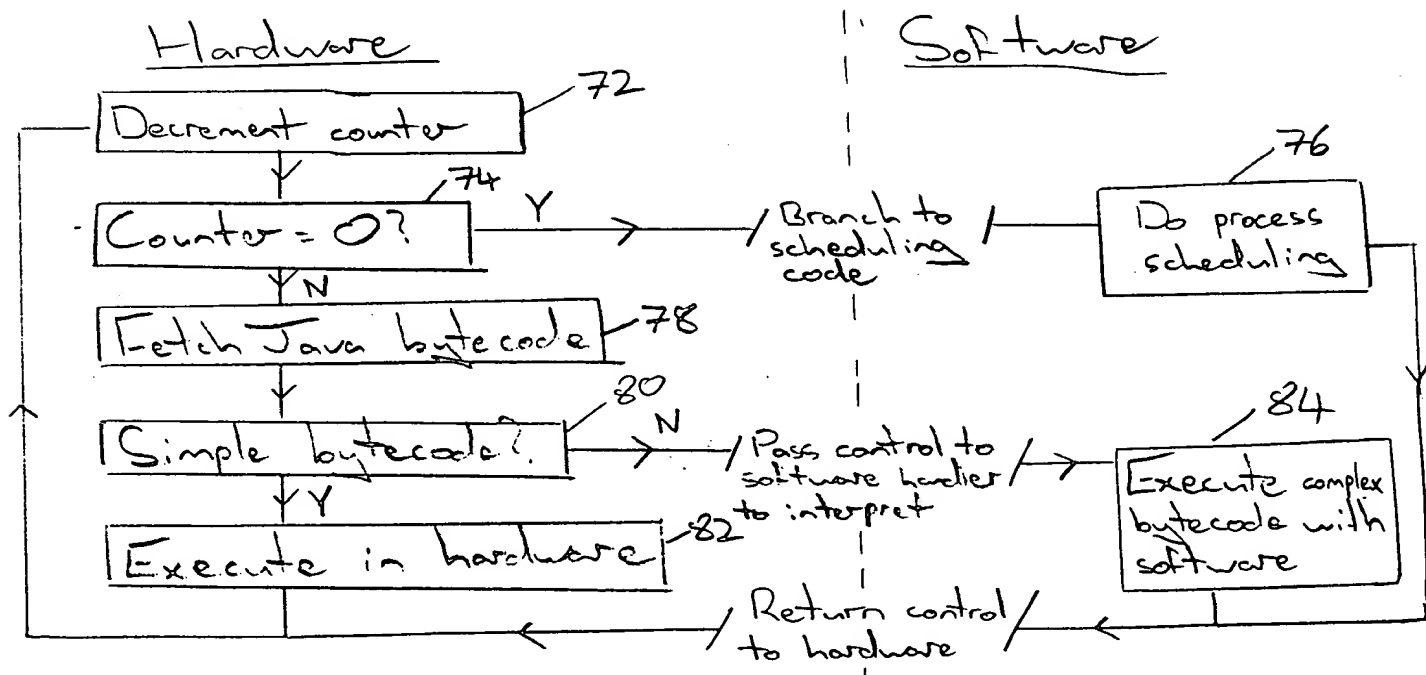 Hardware
Software
72
Decrement counter
74
76
Counter = 0?
Y
Branch to
scheduling
code
Do process
scheduling
N
Fetch Java bytecode
78
80
Simple bytecode?
N
Pass control to
software hardler
to interpret
84
Execute complex
bytecode with
software
Y
Execute in hardware
82
Return control
to hardware